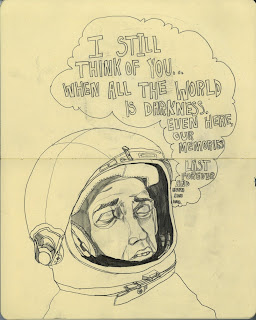 I STILL
THINK OF YOU...
WHEN ALL THE WORLD
IS DARKNESS.
EVEN HERE,
OUR
MEMORIES
LAST
FOREVER
AND